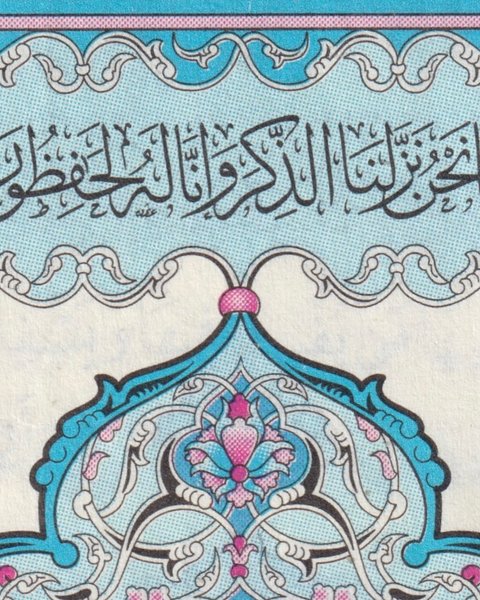 نَحْنُ نَزَّلْنَا الذِّكْرَ وَإِنَّا لَهُ لَحَٰفِظُونَ